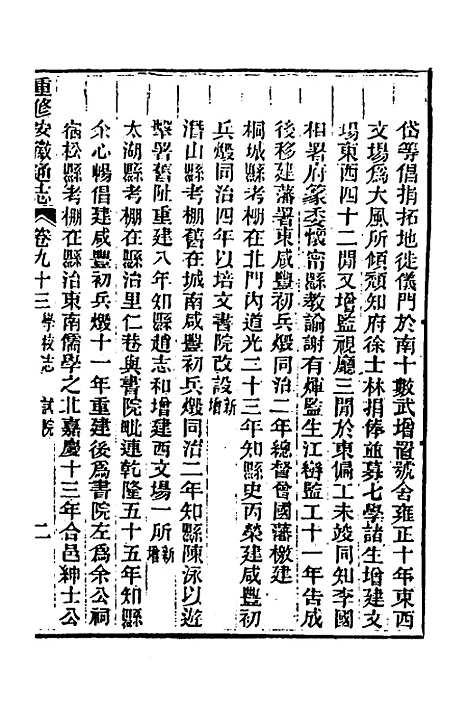 岱等倡捐拓地徙儀門於南十數武增置號舍雍正十年東西
文場爲大風所傾頽知府徐士林捐俸並募七學諸生增建文
場東西四十二閒又增監視廳三閒於東偏工未竣同知李國
相署府篆委懷甯縣教諭謝有煇監生江巒監工十一年告成
後移建藩署東咸豐初兵燬同治二年總督曾國藩檄建
桐城縣考棚在北門內道光二十三年知縣史丙榮建咸豐初
兵燬同治四年以培文書院改設新增
潛山縣考棚舊在城南咸豐初兵燬同治二年知縣陳泳以遊
擊署舊阯重建八年知縣趙志和增建西文場一所新增
太湖縣考棚在縣治里仁巷與書院毗連乾隆五十五年知縣
余心暢倡建咸豐初兵燬十一年重建後爲書院左爲余公祠
宿松縣考棚在縣治東南儒學之北嘉慶十三年合邑紳士公
重修安徽通志 卷九十三 學校志 試院 二